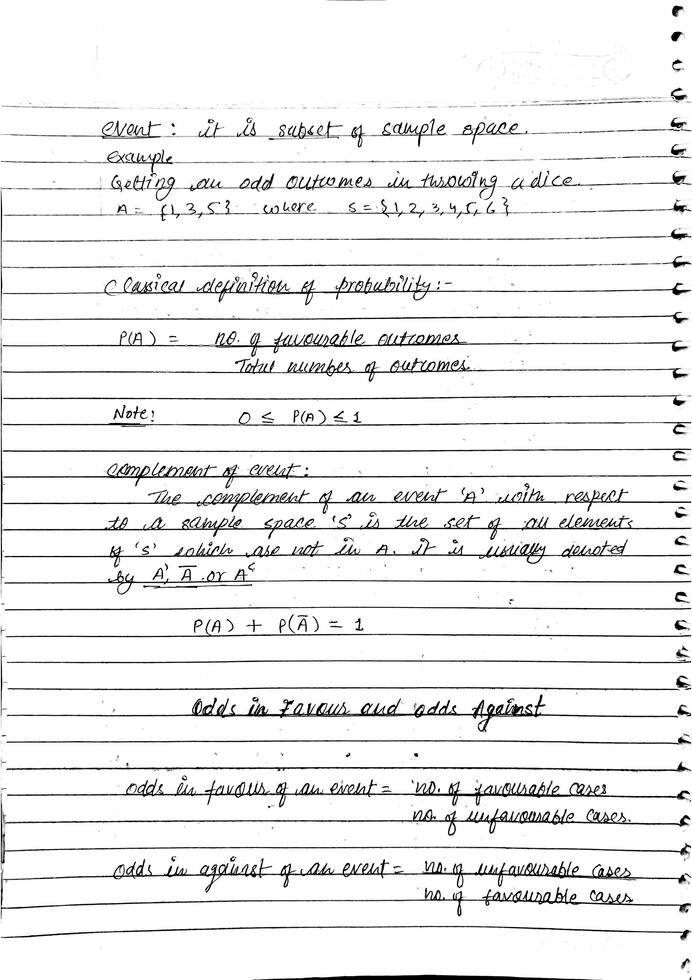 event : it is subset of sample space.
example
Getting an odd outcomes in throwing a dice.
A = {1, 3, 5} where S = {1, 2, 3, 4, 5, 6}
Classical definition of probability :-
P(A) = no. of favourable outcomes
Total number of outcomes.
Note: 0 ≤ P(A) ≤ 1
complement of event :
The complement of an event 'A' with respect
to a sample space 'S' is the set of all elements
of 'S' which are not in A. it is usually denoted
by A', Ā or Aᶜ
P(A) + P(Ā) = 1
Odds in Favour and odds Against
odds in favour of an event = no. of favourable cases
no. of unfavourable cases.
odds in against of an event = no. of unfavourable cases
no. of favourable cases